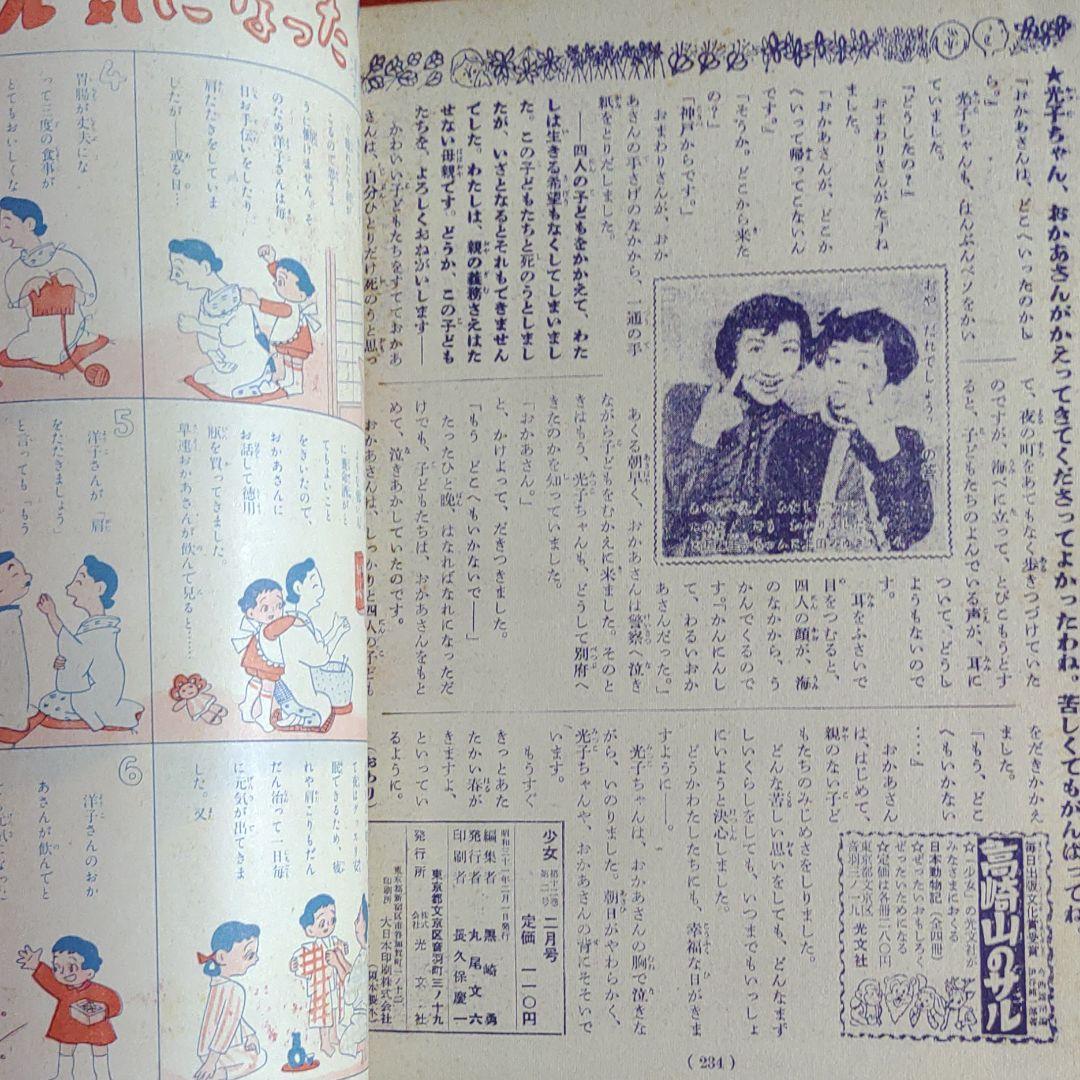 ★光子ちゃん、おかあさんがかえってきてくださってよかったわね。苦しくてもがんばってね
「おかあさんは、どこへいったのかし
ら。」
光子ちゃんも、はんぶんベソをかい
ていました。
「どうしたの？」
おまわりさんがたずね
ました。
「おかあさんが、どこか
へいって帰ってこないん
です。」
「そうか。どこから来た
の？」
「神戸からです。」
おまわりさんが、おか
あさんの手さげのなかから、一通の手
紙をとりだしました。
――四人の子どもをかかえて、わた
しは生きる希望もなくしてしまいまし
た。この子どもたちと死のうとしまし
たが、いざとなるとそれもできません
でした。わたしは、親の義務さえはた
せない母親です。どうか、この子ども
たちを、よろしくおねがいします――
かわいい子どもたちをすてておかあ
さんは、自分ひとりだけ死のうと思っ
て、夜の町をあてもなく歩きつづけていた
のですが、海べに立って、とびこもうとす
ると、子どもたちのよんでいる声が、耳に
ついて、どうし
ようもないので
す。
耳をふさいで
目をつむると、
四人の顔が、海
のなかから、う
かんでくるので
す。「かんにんし
て、わるいおか
あさんだった。」
あくる朝早く、おかあさんは警察へ泣き
ながら子どもをむかえに来ました。そのと
きはもう、光子ちゃんも、どうして別府へ
きたのかを知っていました。
「おかあさん。」
と、かけよって、だきつきました。
「もう どこへもいかないで――」
たったひと晩、はなればなれになっただ
けでも、子どもたちは、おかあさんをもと
めて、泣きあかしていたのです。
おかあさんは、しっかりと四人の子ども
をだきかかえ
ました。
「もう、どこ
へもいかない
‥‥」
おかあさん
は、はじめて、
親のない子ど
もたちのみじめさをしりました。
どんな苦しい思いをしても、どんなまず
しいくらしをしても、いつまでもいっしょ
にいようと決心しました。
どうかわたしたちにも、幸福な日がきま
すように――。
光子ちゃんは、おかあさんの胸で泣きな
がら、いのりました。朝日がやわらかく、
光子ちゃんや、おかあさんの背にそそいで
います。
もうすぐ
きっとあた
たかい春が
きますよ、
といってい
るように。
（おわり）
おや、だれでしょう？の答
毎日出版文化賞受賞
高崎山のサル
☆「少女」の光文社が
みなさまにおくる
日本動物記（全四冊）
☆ぜったいおもしろく
ぜったいためになる
☆定価は各冊二八〇円
東京都文京区
音羽三ノ一九 光文社
少女 第十二巻 第二号 二月号
定価 一一〇円
昭和三十一年二月一日発行
編集者 黒崎勇
発行者 丸尾文六
印刷者 長久保慶一
東京都文京区音羽町三ノ十九
発行所 株式会社 光文社
印刷所 大日本印刷株式会社
（ 234 ）
元気になった
うに働けません。そ
のため洋子さんは毎
日お手伝いをしたり
肩たたきをしていま
したが――或る日…
4
胃腸が丈夫にな
って三度の食事が
とてもおいしくな
てもよいこと
をきいたので、
おかあさんに
お話して徳用
瓶を買ってきました。
早速おかあさんが飲んで見ると……
5
洋子さんが「肩
をたたきましょう」
と言っても「もう
眠できるため、疲
れや肩こりもだん
だん治って一日毎
に元気が出てきま
した。又
6
洋子さんのおか
あさんが飲んでと